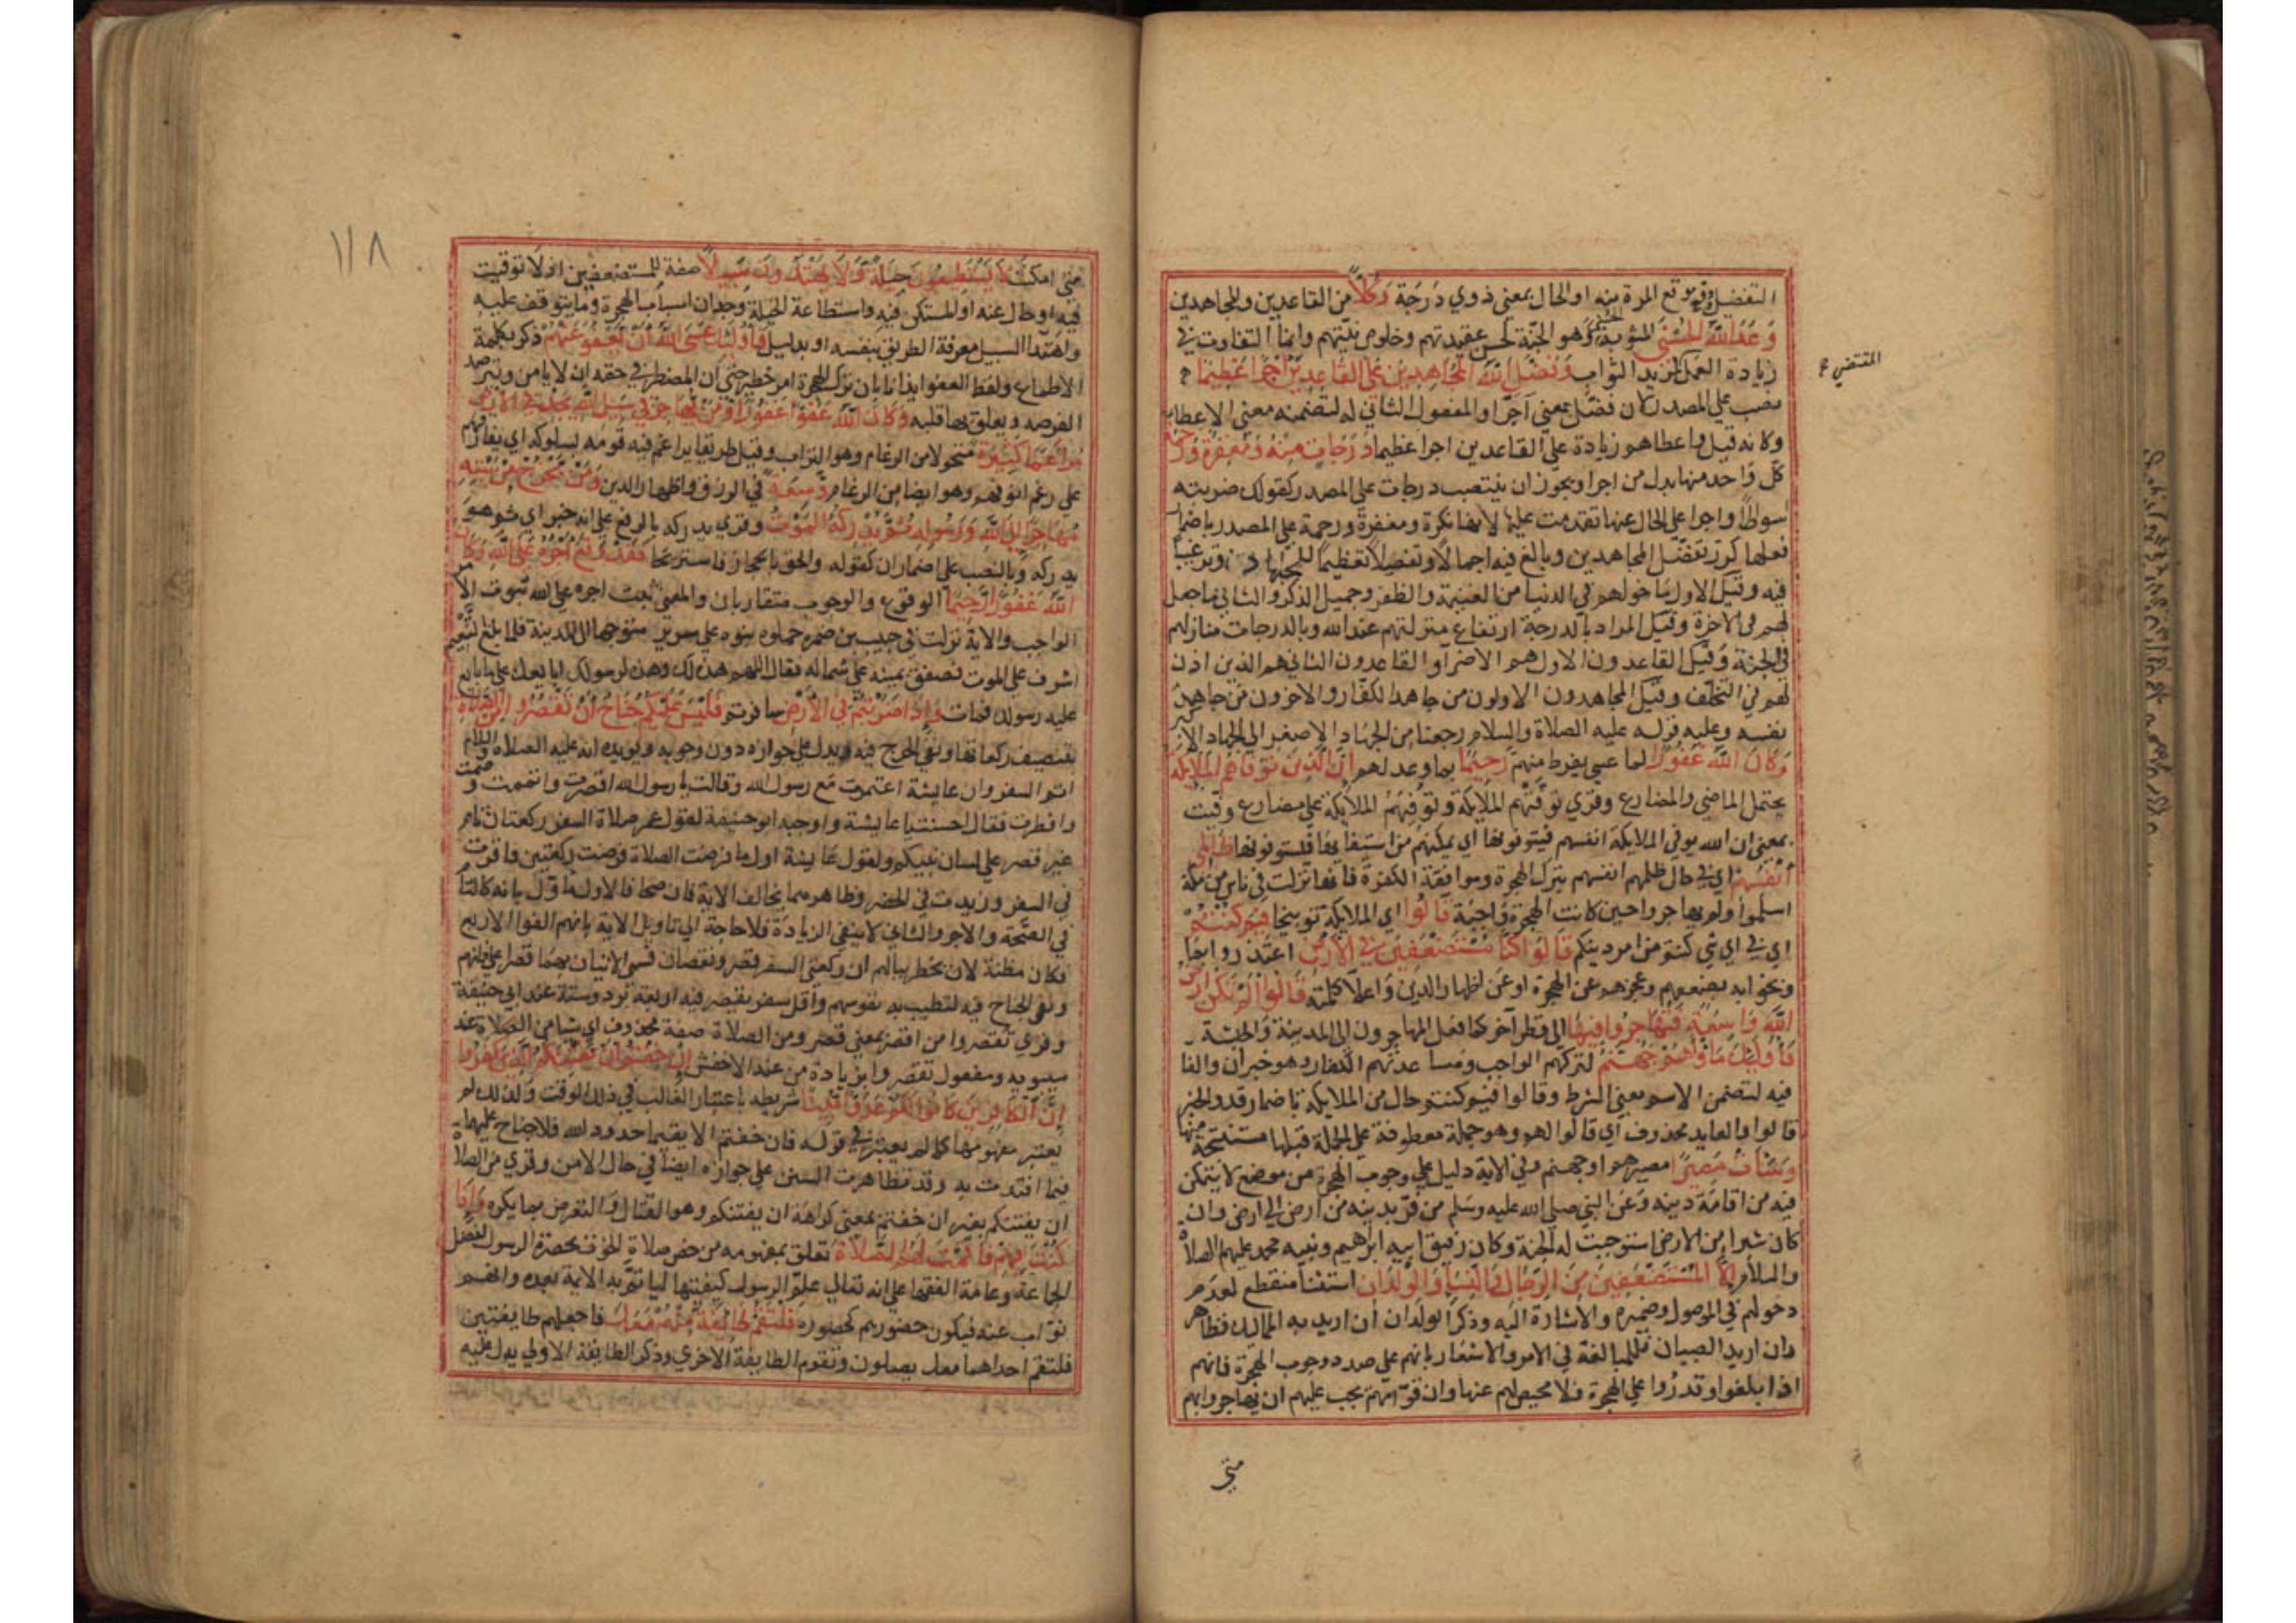 التفضل ووقع موقع المرة منه او الحال بمعنى ذوي درجة وكلا من القاعدين والمجاهدين
وعد الله الحسنى المثوبة الحسنى وهو الجنة لحسن عقيدتهم وخلوص نيتهم وانما التفاوت في
زيادة العمل لمزيد الثواب وفضل الله المجاهدين على القاعدين اجرا عظيما
المقتضي
نصب على المصدر لان فضل بمعنى آجر او المفعول الثاني له لتضمنه معنى الاعطا
وكانه قيل واعطاهم زيادة على القاعدين اجرا عظيما درجات منه ومغفرة ورحمة
كل واحد منها بدل من اجرا ويجوز ان ينتصب درجات على المصدر كقولك ضربته
اسواطا واجرا على الحال عنها تقدمت عليها لانها نكرة ومغفرة ورحمة على المصدر باضمار
فعلها كرر تفضل المجاهدين وبالغ فيه اجمالا وتفصيلا تعظيما للجهاد وترغيبا
فيه وقيل الاول ما خولهم في الدنيا من الغنيمة والظفر وجميل الذكر والثاني ما جعل
لهم في الاخرة وقيل المراد بالدرجة ارتفاع منزلتهم عند الله وبالدرجات منازلهم
في الجنة وقيل القاعدون الاول هم الاضرا والقاعدون الثاني هم الذين اذن
لهم في التخلف وقيل المجاهدون الاولون من جاهد الكفار والاخرون من جاهد
نفسه وعليه قوله عليه الصلاة والسلام رجعنا من الجهاد الاصغر الى الجهاد الاكبر
وكان الله غفورا لما عسى يفرط منهم رحيما بما وعد لهم ان الذين توفاهم الملايكة
يحتمل الماضي والمضارع وقري توفتهم الملايكة وتوفيهم الملايكة على مضارع وفيت
بمعنى ان الله يوفي الملايكة انفسهم فيتوفونها اي يمكنهم من استيفايها فيستوفونها ظالمي
انفسهم اي في حال ظلمهم انفسهم بترك الهجرة وموافقة الكفرة فانها نزلت في ناس من مكة
اسلموا ولم يهاجروا حين كانت الهجرة واجبة قالوا اي الملايكة توبيخا فيم كنتم
اي في اي شي كنتم من امر دينكم قالوا كنا مستضعفين في الارض اعتذروا مما
وبخوا به بضعفهم وعجزهم عن الهجرة او عن اظهار الدين واعلا كلمته قالوا الم تكن ارض
الله واسعة فتهاجروا فيها الى قطر آخر كما فعل المهاجرون الى المدينة والحبشة
فاوليك ماواهم جهنم لتركهم الواجب ومساعدتهم الكفار وهو خبر ان والفا
فيه لتضمن الاسم معنى الشرط وقالوا فيم كنتم حال من الملايكة باضمار قد والخبر
قالوا والعايد محذوف اي قالوا لهم وهو جملة معطوفة على الجملة قبلها مستنتجة منها
وساءت مصيرا مصيرهم او جهنم وفي الاية دليل على وجوب الهجرة من موضع لا يتمكن
فيه من اقامة دينه وعن النبي صلى الله عليه وسلم من فر بدينه من ارض الى ارض وان
كان شبرا من الارض استوجبت له الجنة وكان رفيق ابيه ابرهيم ونبيه محمد عليهم الصلاة
والسلام الا المستضعفين من الرجال والنسا والولدان استثنا منقطع لعدم
دخولهم في الموصول وضميره والاشارة اليه وذكر الولدان ان اريد به المماليك فظاهر
وان اريد الصبيان فللمبالغة في الامر والاشعار بانهم على صدد وجوب الهجرة فانهم
اذا بلغوا وقدروا على الهجرة فلا محيص لهم عنها وان قوامهم يجب عليهم ان يهاجروا بهم
متى
١١٨
متى امكنت لا يستطيعون حيلة ولا يهتدون سبيلا صفة للمستضعفين اذ لا توقيت
فيه او حال عنه او المستكن فيه واستطاعة الحيلة وجدان اسباب الهجرة وما يتوقف عليه
واهتدا السبيل معرفة الطريق بنفسه او بدليل فاوليك عسى الله ان يعفو عنهم ذكر بكلمة
الاطماع ولفظ العفو ايذانا بان ترك الهجرة امر خطير حتى ان المضطر في حقه ان لا يامن ويترصد
الفرصه ويعلق بها قلبه وكان الله عفوا غفورا ومن يهاجر في سبيل الله يجد في الارض
مراغما كثيرة متحولا من الرغام وهو التراب وقيل طريقا يراغم فيه قومه بسلوكه اي يفارقهم
على رغم انوفهم وهو ايضا من الرغام وسعة في الرزق واظهار الدين ومن يخرج من بيته
مهاجرا الى الله ورسوله ثم يدركه الموت وقري يدركه بالرفع على انه خبر اي ثم هو
يدركه وبالنصب على اضمار ان كقوله والحق بالحجاز فاستريحا فقد وقع اجره على الله وكان
الله غفورا رحيما الوقوع والوجوب متقاربان والمعنى ثبت اجره على الله ثبوت الامر
الواجب والاية نزلت في جندب بن ضمره حملوه بنوه على سرير متوجها الى المدينة فلما بلغ التنعيم
اشرف على الموت فصفق بيمينه على شماله فقال اللهم هذه لك وهذه لرسولك ابايعك على ما بايع
عليه رسولك فمات واذا ضربتم في الارض سافرتم فليس عليكم جناح ان تقصروا من الصلاة
بتنصيف ركعاتها ونفي الحرج فيه يدل على جوازه دون وجوبه ويؤيده انه عليه الصلاة والسلام
اتم السفر وان عايشة اعتمرت مع رسول الله وقالت يا رسول الله اقصرت واتممت وصمت
وافطرت فقال احسنت يا عايشة واوجبه ابو حنيفة لقول عمر صلاة السفر ركعتان تام
غير قصر على لسان نبيكم ولقول عايشة اول ما فرضت الصلاة فرضت ركعتين فاقرت
في السفر وزيدت في الحضر وظاهرهما يخالف الاية فان صحا فالاول مؤول بانه كالتام
في الصحة والاجر والثاني لا ينفي الزيادة فلا حاجة الى تاويل الاية بانهم الفوا الاربع
فكان مظنة لان يخطر ببالهم ان ركعتي السفر قصر ونقصان فسمى الاتيان بهما قصرا على ظنهم
ونفى الجناح فيه لتطيب به نفوسهم واقل سفر يقصر فيه اربعة برد وستة عند ابي حنيفة
وقري تقصروا من اقصر بمعنى قصر ومن الصلاة صفة محذوف اي شيا من الصلاة عند
سيبويه ومفعول تقصر وابزيادة من عند الاخفش ان خفتم ان يفتنكم الذين كفروا
ان الكافرين كانوا لكم عدوا مبينا شريطه باعتبار الغالب في ذلك الوقت ولذلك لم
يعتبر مفهومها كما لم يعتبر في قوله فان خفتم الا يقيما حدود الله فلا جناح عليهما
فيما افتدت به وقد تظاهرت السنن على جوازه ايضا في حال الامن وقري من الصلاة
ان يفتنكم بغير ان خفتم بمعنى كراهة ان يفتنكم وهو القتال والتعرض بما يكره واذا
كنت فيهم فاقمت لهم الصلاة تعلق بمفهومه من خص صلاة الخوف بحضرة الرسول لفضل
الجماعة وعامة الفقها على انه تعالى علم الرسول كيفيتها لياتم به الايمة بعده وانهم
نواب عنه فيكون حضورهم كحضوره فلتقم طايفة منهم معك فاجعلهم طايفتين
فلتقم احداهما معك يصلون وتقوم الطايفة الاخرى وذكر الطايفة الاولى يدل عليه